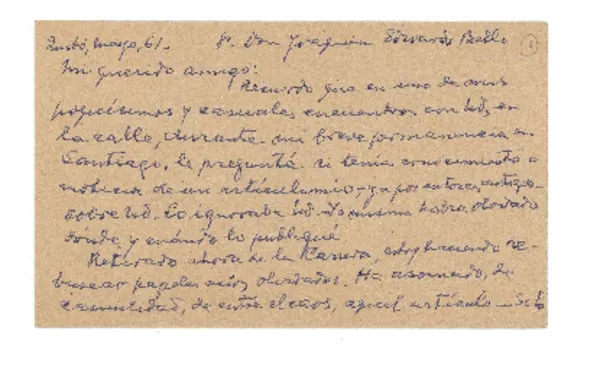 mayo, 61. P. Don Joaquín Edwards Bello
Mi querido amigo:
Recuerdo que en uno de mis
poquísimos y casuales encuentros con Ud, en
la calle, durante mi breve permanencia en
Santiago, le pregunté si tenía conocimiento o
noticia de un artículo mío, ya por entonces antiguo,
sobre Ud. Lo ignoraba Ud. Yo mismo había olvidado
dónde y cuándo lo publiqué
Retirado ahora de la estoy haciendo re-
buscar papeles míos olvidados. Ha asomado, de
casualidad, de entre el caos, aquel artículo